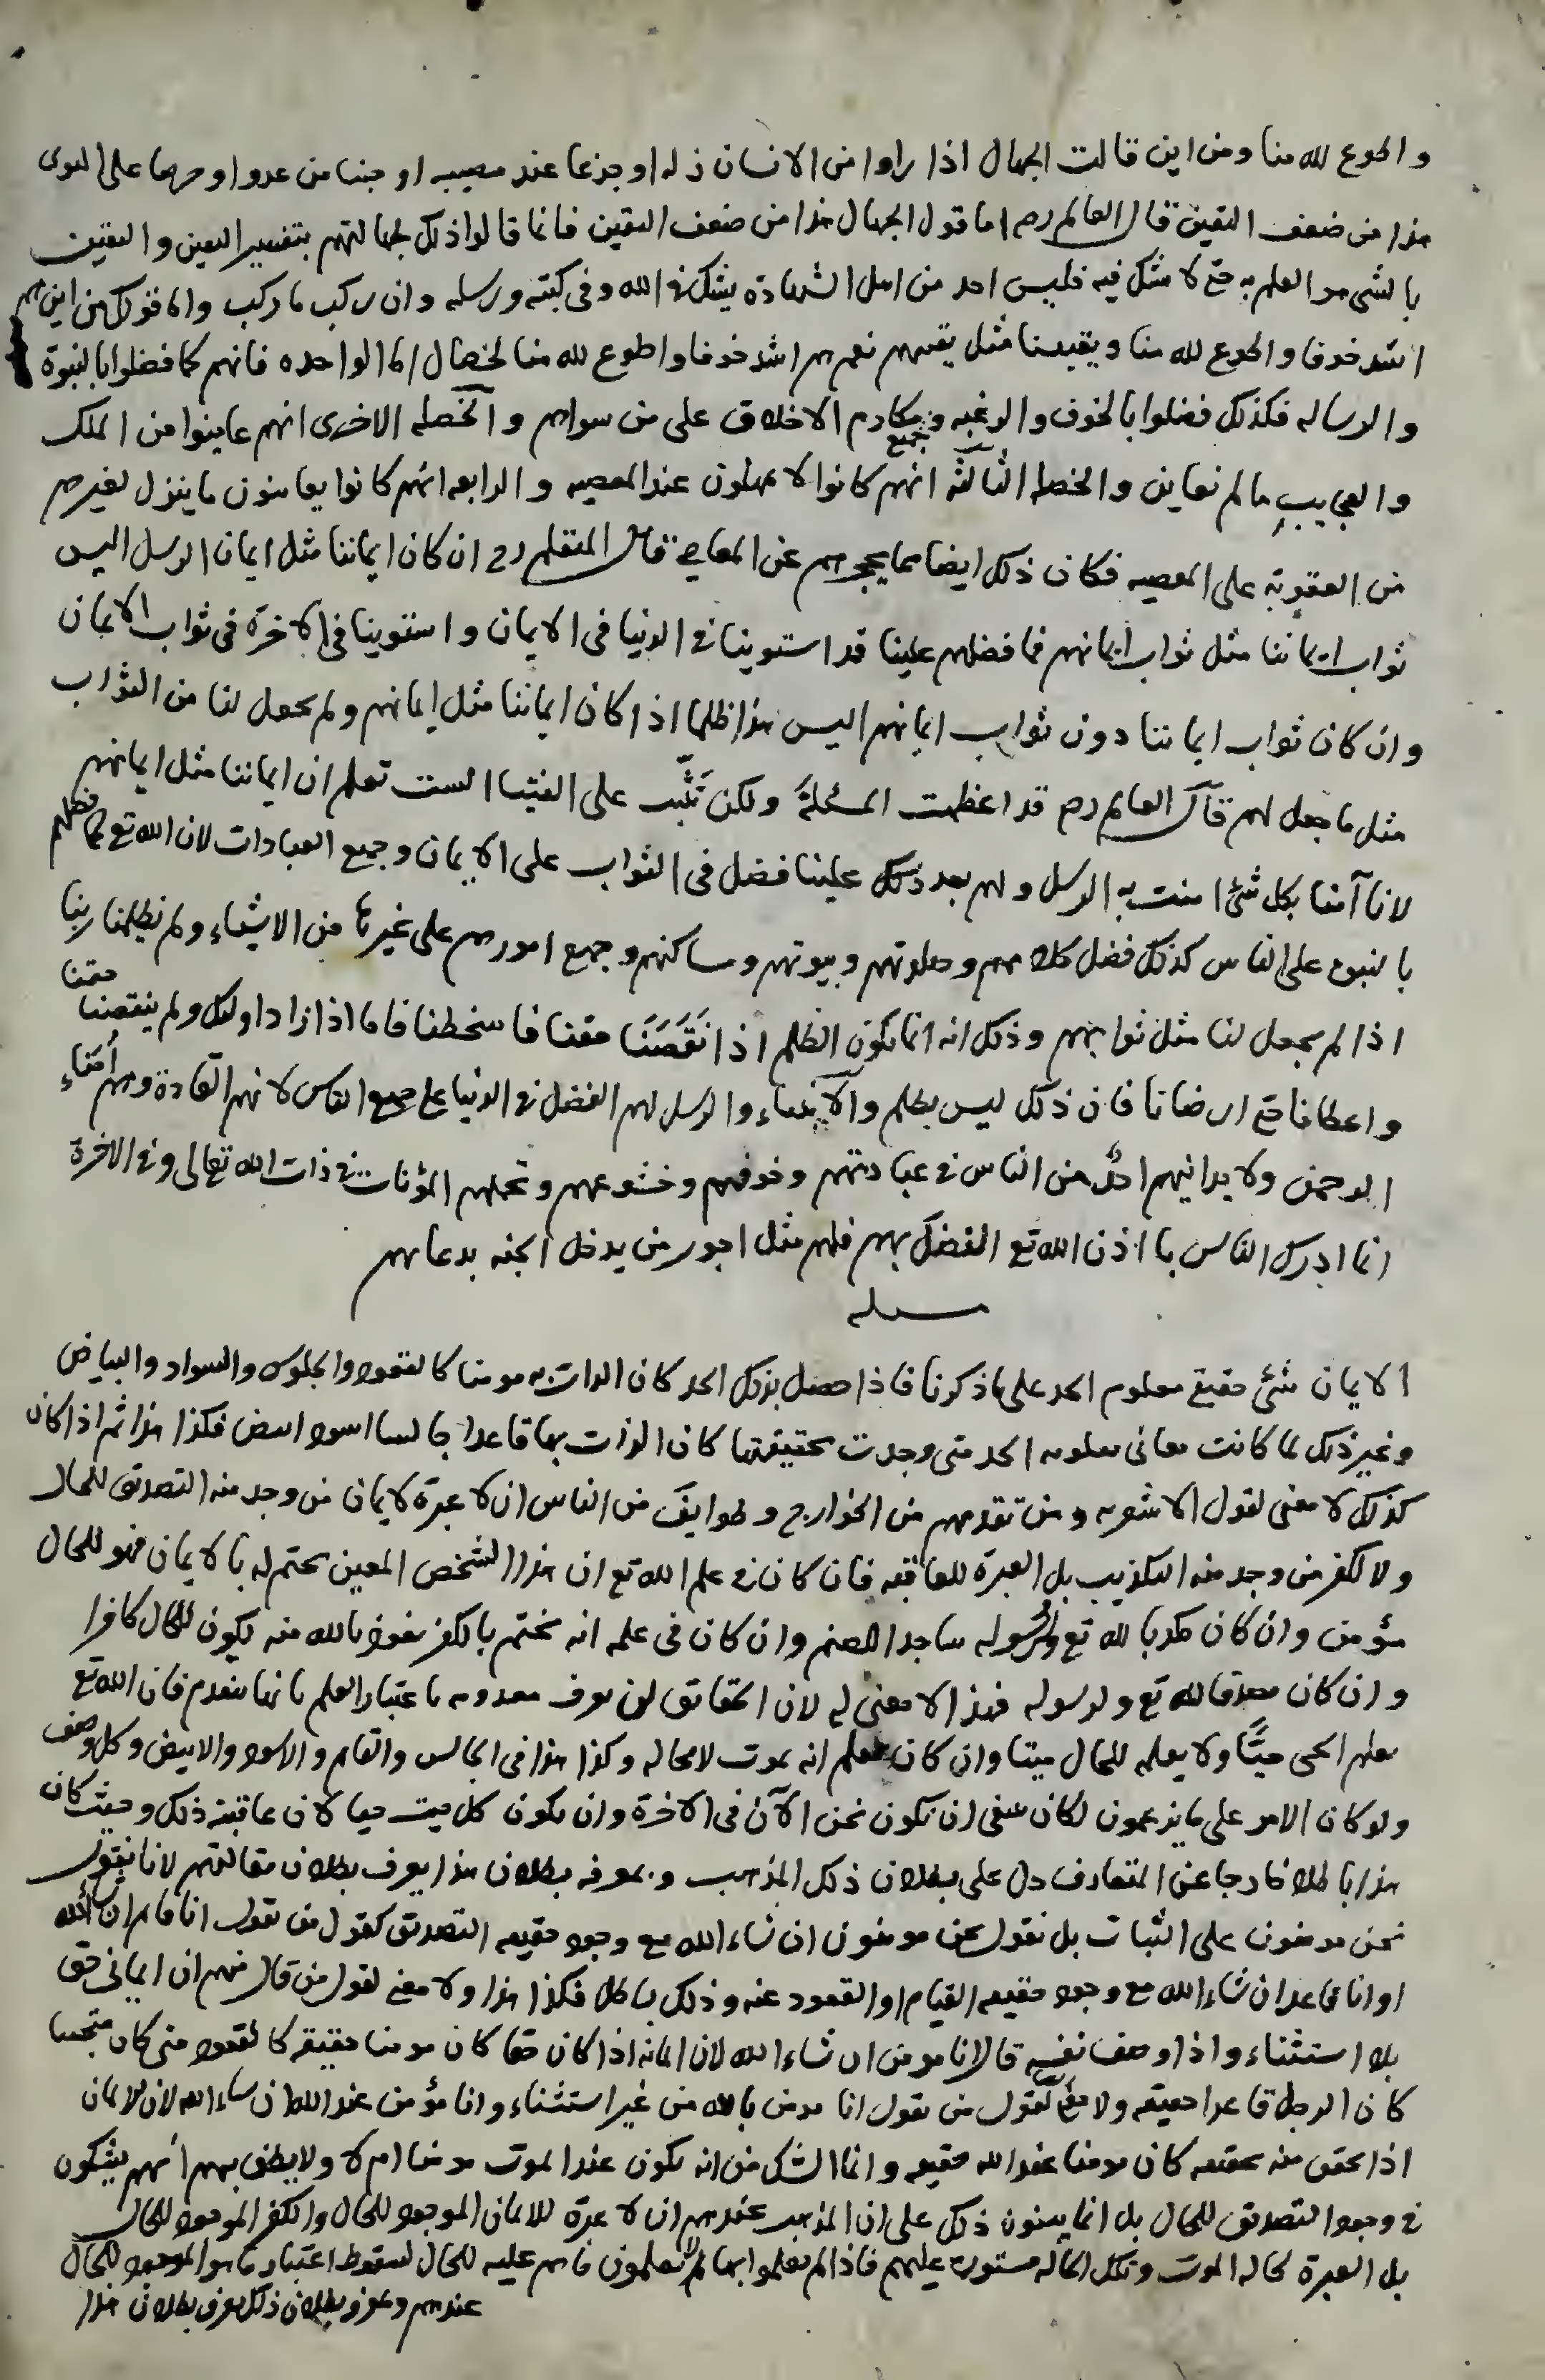 واطوع لله منا ومن اين قالت الجهال اذا راوا من الانسان زله او جزعا عند مصيبه او جبنا من عدو او حرصا على الدنيا
هذا من ضعف اليقين قال العالم رح اما قول الجهال هذا من ضعف اليقين فانما قالوا ذلك لجهالتهم بتفسير اليقين واليقين
بالشى هو العلم به حتى لا يشك فيه فليس احد من اهل الشهادة يشك فى الله وفى كتبه ورسله وان ركب ما ركب واما قولك من اين هم
اشد خوفا واطوع لله منا ويقيننا مثل يقينهم نعم هم اشد خوفا واطوع لله منا لخصال اما الواحده فانهم كما فضلوا بالنبوة
والرساله فكذلك فضلوا بالخوف والرغبه وجميع مكارم الاخلاق على من سواهم والخصله الاخرى انهم عاينوا من الملك
والعجايب ما لم نعاين والخصله الثالثة انهم كانوا لا يمهلون عند المعصيه والرابعه انهم كانوا يعاينون ما ينزل لغيرهم
من العقوبة على المعصيه فكان ذلك ايضا مما يحجزهم عن المعاصى قال المتعلم رح ان كان ايماننا مثل ايمان الرسل اليس
ثواب ايماننا مثل ثواب ايمانهم فما فضلهم علينا قد استوينا فى الدنيا فى الايمان واستوينا فى الاخرة فى ثواب الايمان
وان كان ثواب ايماننا دون ثواب ايمانهم اليس هذا ظلما اذا كان ايماننا مثل ايمانهم ولم يجعل لنا من الثواب
مثل ما جعل لهم قال العالم رح قد اعظمت المسئلة ولكن تثبت على الفتيا الست تعلم ان ايماننا مثل ايمانهم
لانا آمنا بكل شئ امنت به الرسل ولهم بعد ذلك علينا فضل فى الثواب على الايمان وجميع العبادات لان الله تع كما فضلهم
بالنبوة على الناس كذلك فضل كلامهم وصلوتهم وبيوتهم ومساكنهم وجميع امورهم على غيرها من الاشياء ولم يظلمنا ربنا
اذا لم يجعل لنا مثل ثوابهم وذلك انه انما يكون الظلم اذا نَقَصَنَا حقنا فاسخطنا فاما اذا زاد اولئك ولم ينقصنا حقنا
واعطانا حتى ارضانا فان ذلك ليس بظلم والانبياء والرسل لهم الفضل فى الدنيا على جميع الناس لانهم القادة وهم أمناء
الرحمن ولا يدانيهم احدٌ من الناس فى عبادتهم وخوفهم وخشوعهم وتحملهم المؤنات فى ذات الله تعالى وفى الاخرة
انما ادرك الناس باذن الله تع الفضل بهم فلهم مثل اجور من يدخل الجنه بدعائهم
مسله
الايمان شئ حقيقى معلوم الحد على ما ذكرنا فاذا حصل بذلك الحد كان الذات به مومنا كالقعود والجلوس والسواد والبياض
وغير ذلك لما كانت معانى معلومه الحد متى وجدت بحقيقتها كان الذات بها قاعدا جالسا اسود ابيض فكذا هذا ثم اذا كان
كذلك لا معنى لقول الاشعريه ومن تقدمهم من الخوارج وطوايف من الناس ان لا عبرة لايمان من وجد منه التصديق للحال
ولا لكفر من وجد منه التكذيب بل العبرة للعاقبه فان كان فى علم الله تع ان هذا الشخص المعين يختم له بالايمان فهو للحال
مؤمن وان كان مكذبا لله تع ولرسوله ساجدا للصنم وان كان فى علمه انه يختم بالكفر نعوذ بالله منه يكون للحال كافرا
وان كان مصدقا لله تع ولرسوله فهذا لا معنى له لان الحقايق لن تعرف معدومه باعتبار العلم بانها ستعدم فان الله تع
يعلم الحى حيًّا ولا يعلمه للحال ميتا وان كان يعلم انه يموت لا محاله وكذا هذا فى الجالس والقايم والاسود والابيض وكل وصف
ولو كان الامر على ما يزعمون لكان ينبغى ان نكون نحن الآن فى الاخرة وان يكون كل ميت حيا لان عاقبته ذلك وحيث كان
هذا باطلا خارجا عن المتعارف دل على بطلان ذلك المذهب وبمعرفه بطلان هذا يعرف بطلان مقالتهم لانا نقول
نحن مومنون على الثبات بل نقول نحن مومنون ان شاء الله مع وجود حقيقه التصديق كقول من يقول انا قايم ان شاء الله
او انا قاعد ان شاء الله مع وجود حقيقه القيام او القعود عنه وذلك باطل فكذا هذا ولا معنى لقول من قال منهم ان ايمانى حق
بلا استثناء واذا وصف نفسه قال انا مومن ان شاء الله لان ايمانه اذا كان حقا كان مومنا حقيقه كالقعود متى كان متحققا
كان الرجل قاعدا حقيقه ولا معنى لقول من يقول انا مومن بالله من غير استثناء وانا مؤمن عند الله ان شاء الله لان الايمان
اذا تحقق منه بحقيقته كان مومنا عند الله حقيقه وانما الشك من انه يكون عند الموت مومنا ام لا ولا يظن بهم انهم يشكون
فى وجود التصديق للحال بل انما يبنون ذلك على ان المذهب عندهم ان لا عبرة للايمان الموجود للحال والكفر الموجود للحال
بل العبرة لحاله الموت وتلك الحاله مستورة عليهم فاذا لم يعلموا بها لا يعلمون ما هم عليه للحال لسقوط اعتبار ما هو الموجود للحال
عندهم وبمعرفه بطلان ذلك يعرف بطلان هذا